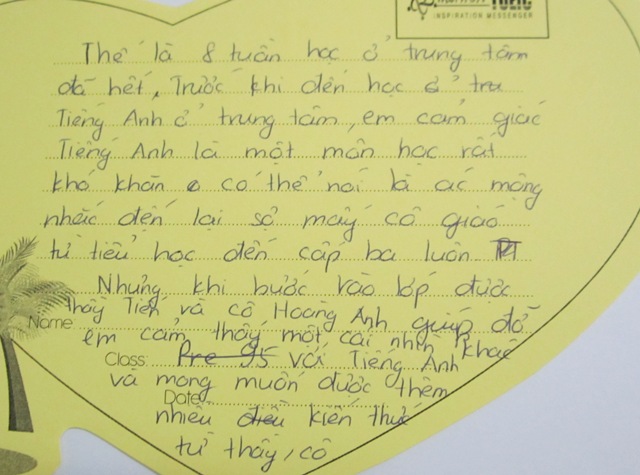 TOEIC
INSPIRATION MESSENGER
Thế là 8 tuần học ở trung tâm
đã hết, Trước khi đến học ở tru
Tiếng Anh ở trung tâm, em cảm giác
Tiếng Anh là một môn học rất
khó khăn có thể nói là ác mộng
nhắc đến lại sợ mấy cô giáo
từ tiểu học đến cấp ba luôn
Nhưng khi bước vào lớp được
thầy Tiến và cô Hoàng Anh giúp đỡ
Name em cảm thấy một cái nhìn khác
Class: Pre 95 với Tiếng Anh
và mong muốn được thêm
Date:
nhiều điều kiến thức
từ thầy, cô